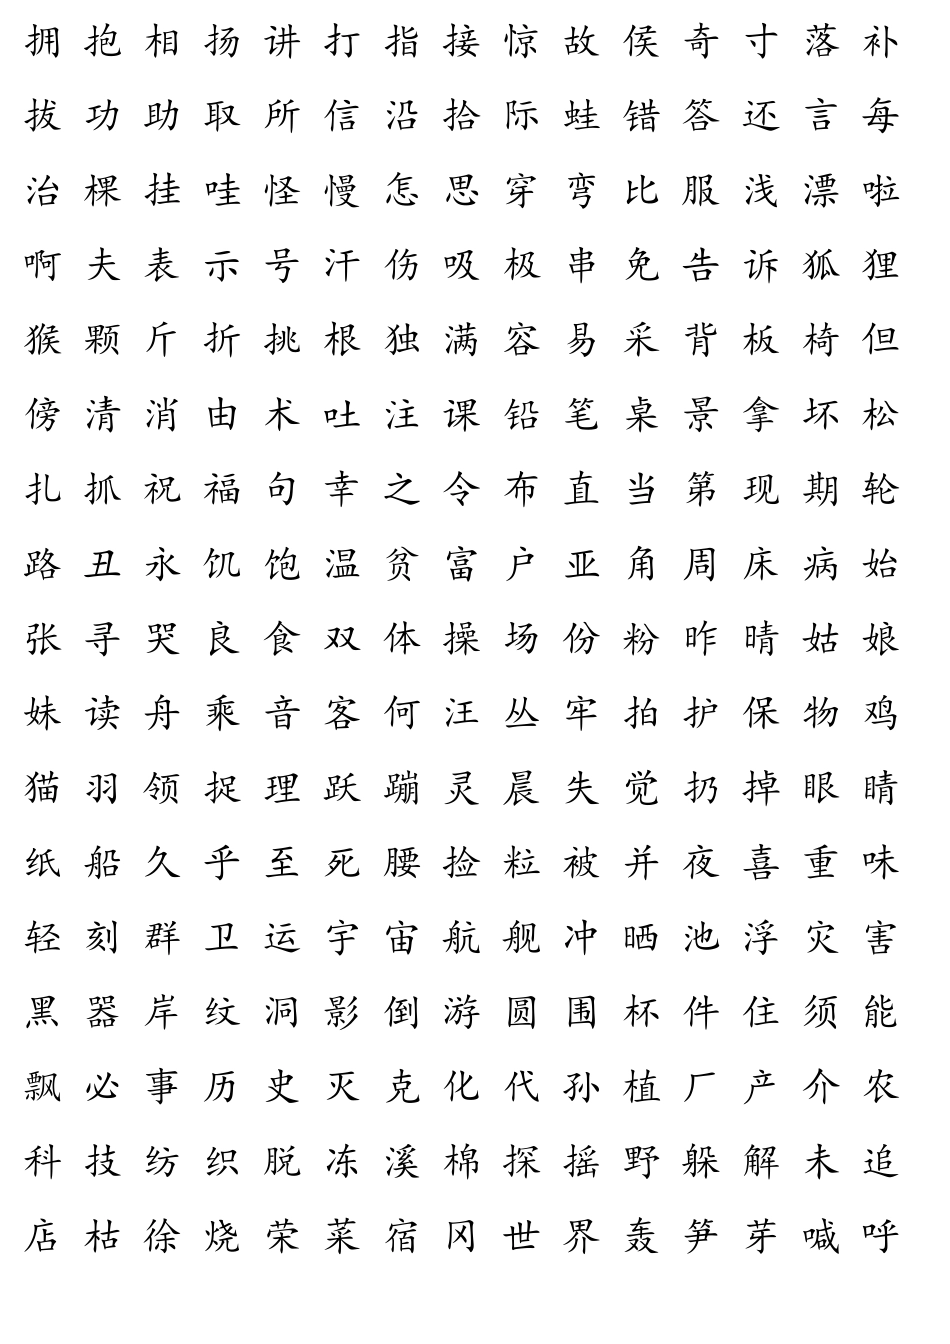 拥 抱 相 扬 讲 打 指 接 惊 故 侯 奇 寸 落 补
拔 功 助 取 所 信 沿 拾 际 蛙 错 答 还 言 每
治 棵 挂 哇 怪 慢 怎 思 穿 弯 比 服 浅 漂 啦
啊 夫 表 示 号 汗 伤 吸 极 串 免 告 诉 狐 狸
猴 颗 斤 折 挑 根 独 满 容 易 采 背 板 椅 但
傍 清 消 由 术 吐 注 课 铅 笔 桌 景 拿 坏 松
扎 抓 祝 福 句 幸 之 令 布 直 当 第 现 期 轮
路 丑 永 饥 饱 温 贫 富 户 亚 角 周 床 病 始
张 寻 哭 良 食 双 体 操 场 份 粉 昨 晴 姑 娘
妹 读 舟 乘 音 客 何 汪 丛 牢 拍 护 保 物 鸡
猫 羽 领 捉 理 跃 蹦 灵 晨 失 觉 扔 掉 眼 睛
纸 船 久 乎 至 死 腰 捡 粒 被 并 夜 喜 重 味
轻 刻 群 卫 运 宇 宙 航 舰 冲 晒 池 浮 灾 害
黑 器 岸 纹 洞 影 倒 游 圆 围 杯 件 住 须 能
飘 必 事 历 史 灭 克 化 代 孙 植 厂 产 介 农
科 技 纺 织 脱 冻 溪 棉 探 摇 野 躲 解 未 追
店 枯 徐 烧 荣 菜 宿 冈 世 界 轰 笋 芽 喊 呼